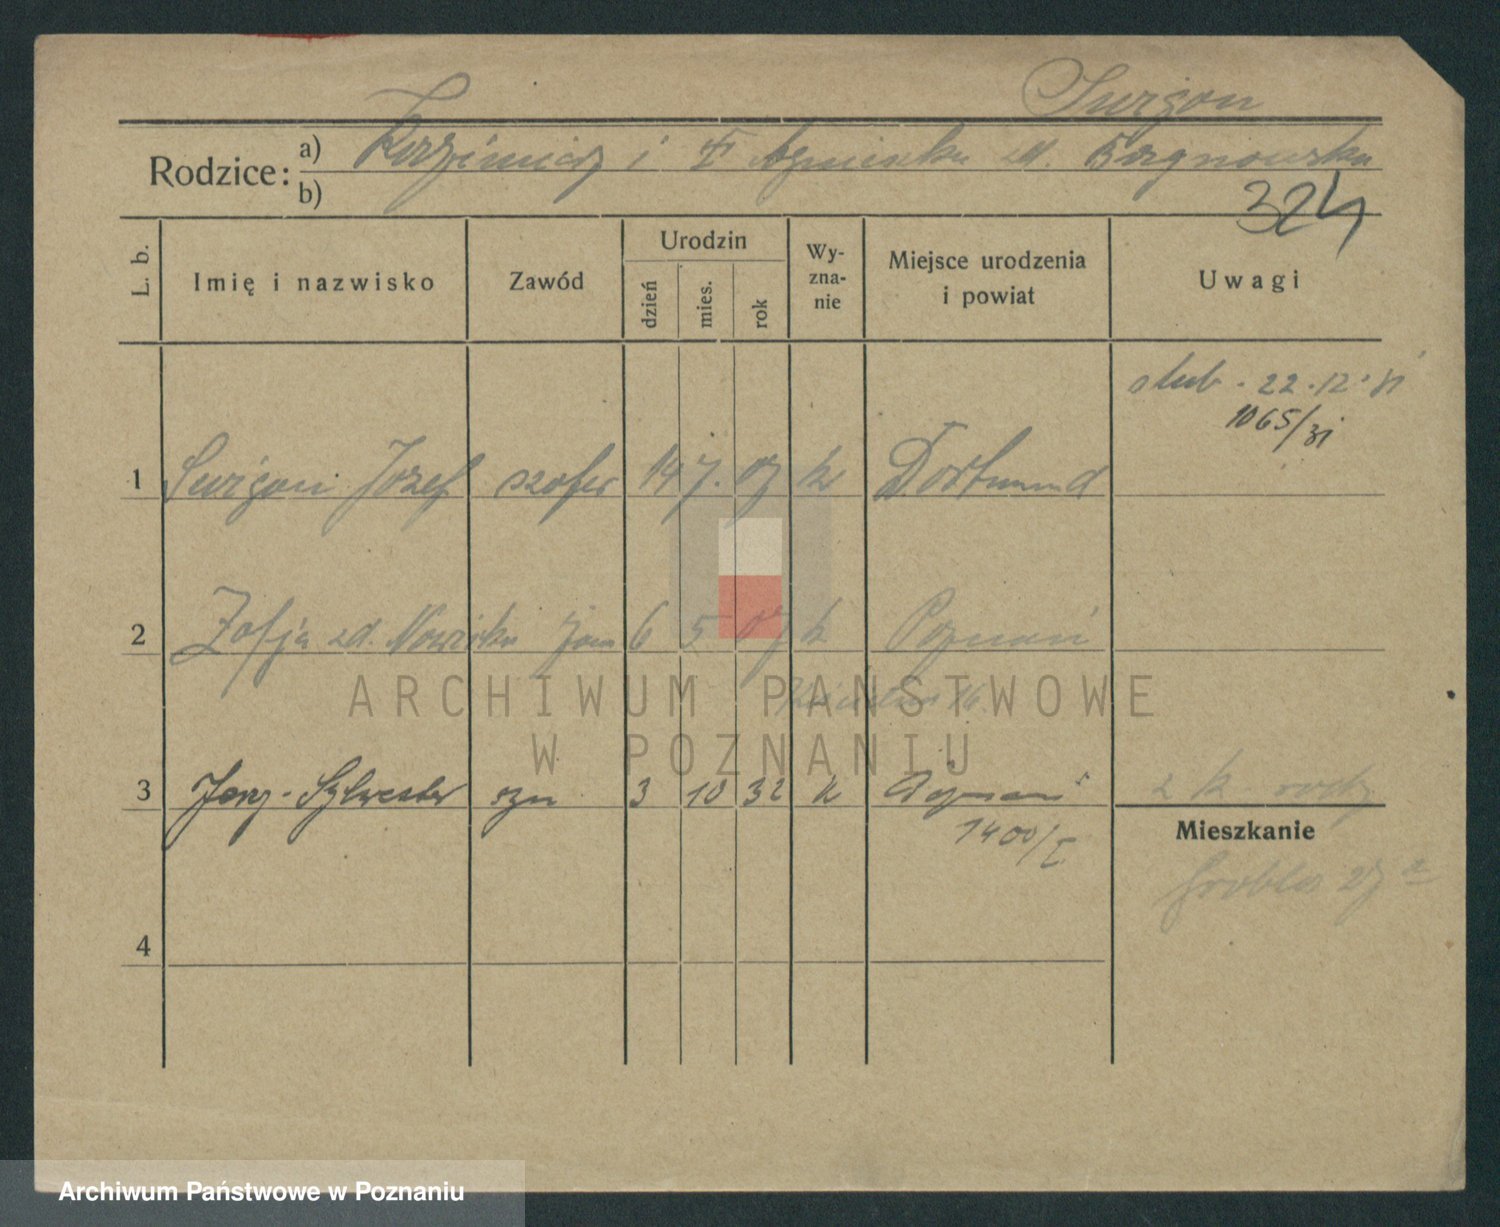 Surgon
Rodzice:
a) Kazimierz i Agnieszka zd.
b)
324
L. b.
Imię i nazwisko
Zawód
Urodzin
dzień
mies.
rok
Wy-
zna-
nie
Miejsce urodzenia
i powiat
Uwagi
ślub. 22.12.31
1065/31
1 Józef szofer 14 7. 07 k Dortmund
2 Zofja zd. Nowicka żona 6 5 07 k Poznań
ARCHIWUM PAŃSTWOWE
W POZNANIU
3 Jerzy-Sylwester syn 3 10 32 k Poznań
1400/I
2 k.
Mieszkanie
Grobla 27a
4
Archiwum Państwowe w Poznaniu